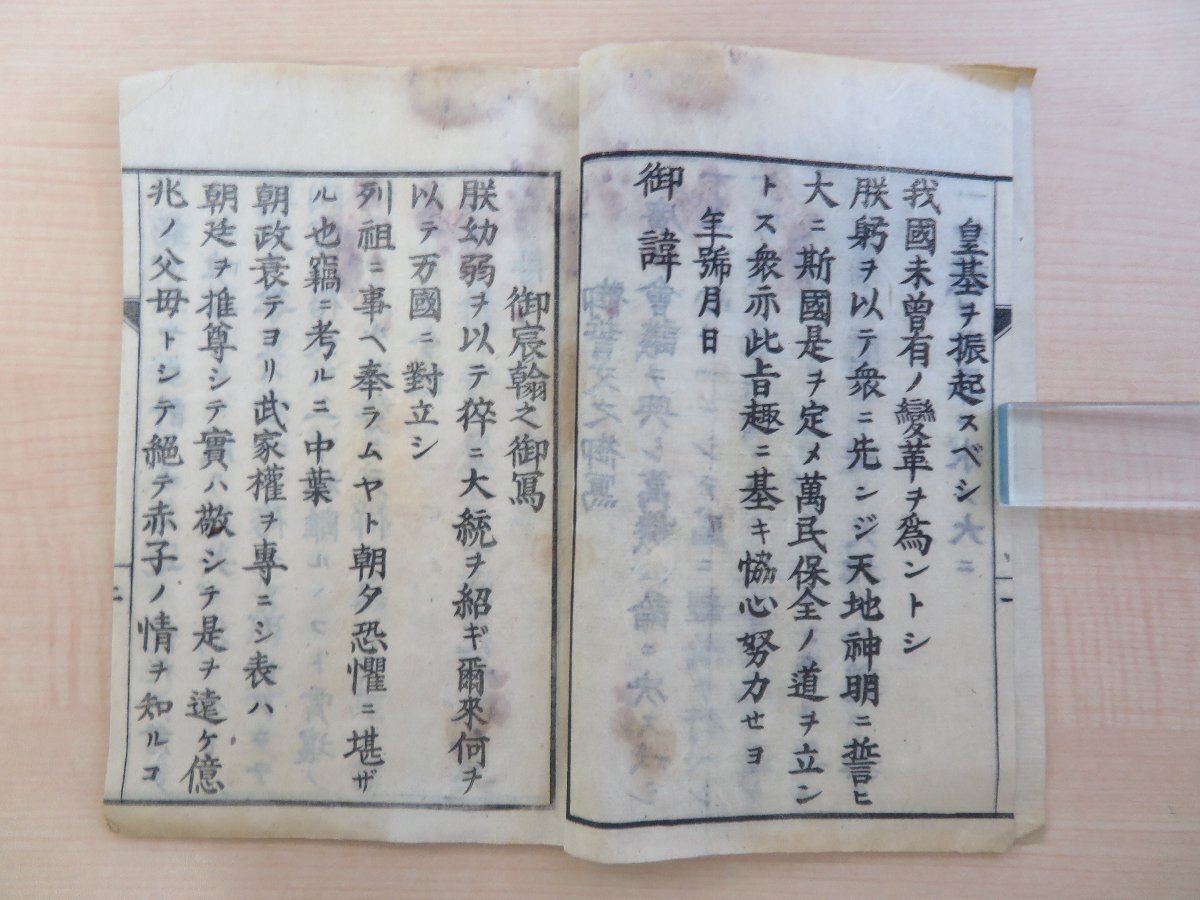 皇基ヲ振起スベシ
我國未曾有ノ變革ヲ爲ントシ
朕躬ヲ以テ衆ニ先ンジ天地神明ニ誓ヒ
大ニ斯國是ヲ定メ萬民保全ノ道ヲ立ン
トス衆亦此旨趣ニ基キ恊心努力セヨ
年號月日
御諱
御宸翰之御寫
朕幼弱ヲ以テ猝ニ大統ヲ紹ギ爾來何ヲ
以テ万國ニ對立シ
列祖ニ事ヘ奉ラムヤト朝夕恐懼ニ堪ザ
ル也竊ニ考ルニ中葉
朝政衰テヨリ武家權ヲ專ニシ表ハ
朝廷ヲ推尊シテ實ハ敬シテ是ヲ遠ケ億
兆ノ父母トシテ絕テ赤子ノ情ヲ知ルコ
一
二